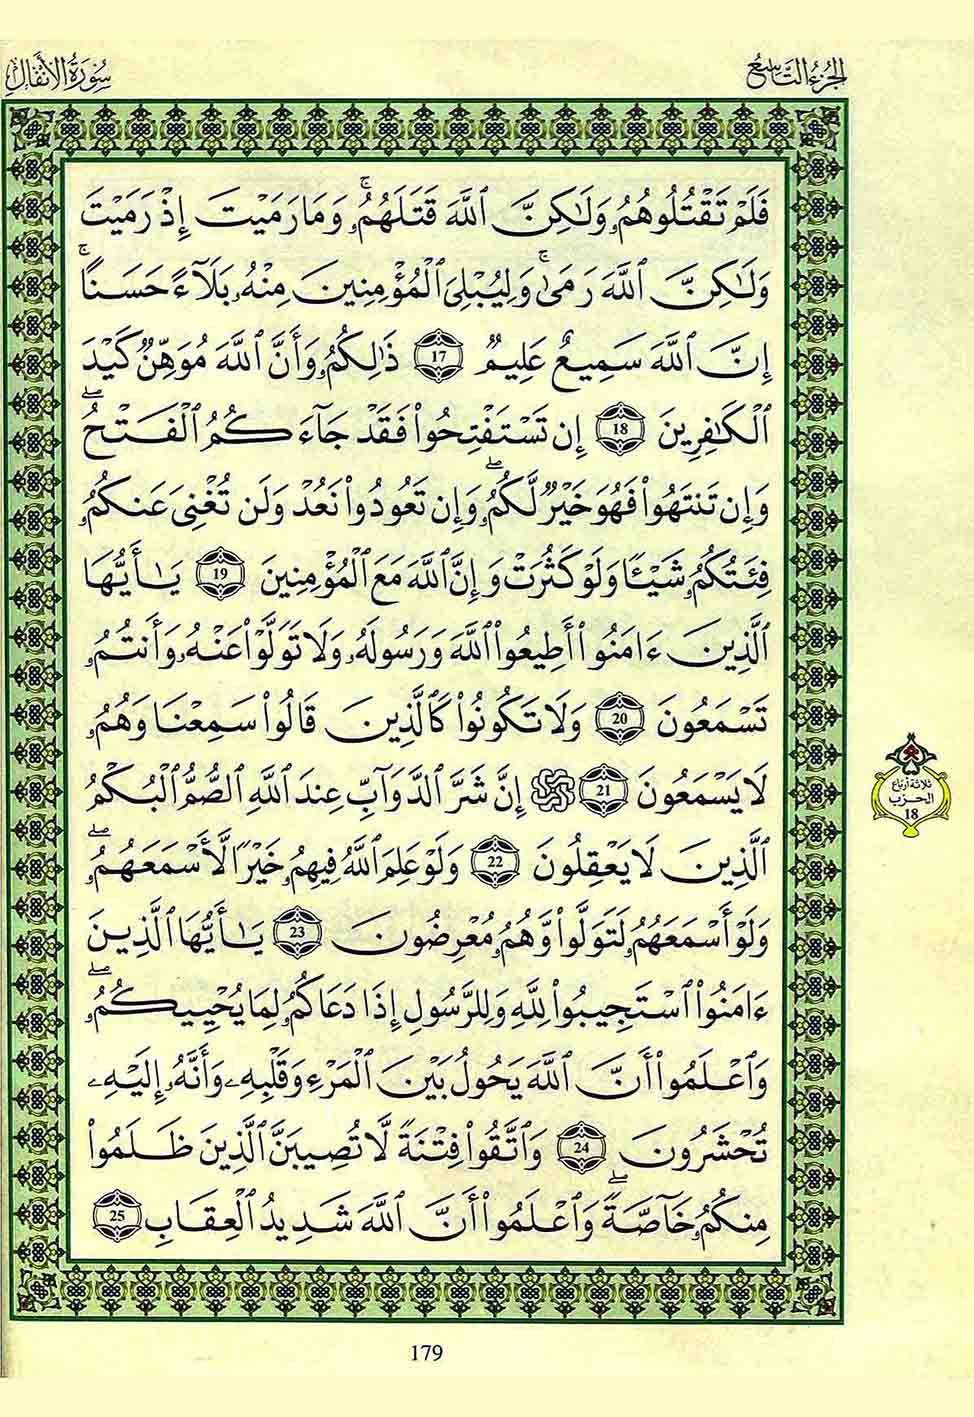 الجزء التاسع
سورة الأنفال
فَلَمْ تَقْتُلُوهُمُۥ وَلَٰكِنَّ ٱللَّهَ قَتَلَهُمُۥۚ وَمَا رَمَيْتَ إِذْ رَمَيْتَ
وَلَٰكِنَّ ٱللَّهَ رَمَىٰۚ وَلِيُبْلِيَ ٱلْمُؤْمِنِينَ مِنْهُۥ بَلَآءً حَسَنًاۚ
إِنَّ ٱللَّهَ سَمِيعٌ عَلِيمٌ 17 ذَٰلِكُمُۥ وَأَنَّ ٱللَّهَ مُوَهِّنٌ كَيْدَ
ٱلْكَٰفِرِينَ 18 إِن تَسْتَفْتِحُوا۟ فَقَدْ جَآءَكُمُ ٱلْفَتْحُۖ
وَإِن تَنتَهُوا۟ فَهُوَ خَيْرٌ لَّكُمُۥۖ وَإِن تَعُودُوا۟ نَعُدْ وَلَن تُغْنِيَ عَنكُمُۥ
فِئَتُكُمُۥ شَيْـًٔا وَلَوْ كَثُرَتْ وَإِنَّ ٱللَّهَ مَعَ ٱلْمُؤْمِنِينَ 19 يَٰٓأَيُّهَا
ٱلَّذِينَ ءَامَنُوٓا۟ أَطِيعُوا۟ ٱللَّهَ وَرَسُولَهُۥ وَلَا تَوَلَّوْا۟ عَنْهُۥ وَأَنتُمُۥ
تَسْمَعُونَ 20 وَلَا تَكُونُوا۟ كَٱلَّذِينَ قَالُوا۟ سَمِعْنَا وَهُمُۥ
لَا يَسْمَعُونَ 21 إِنَّ شَرَّ ٱلدَّوَآبِّ عِندَ ٱللَّهِ ٱلصُّمُّ ٱلْبُكْمُ
ٱلَّذِينَ لَا يَعْقِلُونَ 22 وَلَوْ عَلِمَ ٱللَّهُ فِيهِمُۥ خَيْرًا لَّأَسْمَعَهُمُۥۖ
وَلَوْ أَسْمَعَهُمُۥ لَتَوَلَّوا۟ وَّهُمُۥ مُعْرِضُونَ 23 يَٰٓأَيُّهَا ٱلَّذِينَ
ءَامَنُوا۟ ٱسْتَجِيبُوا۟ لِلَّهِ وَلِلرَّسُولِ إِذَا دَعَاكُمُۥ لِمَا يُحْيِيكُمُۥۖ
وَٱعْلَمُوٓا۟ أَنَّ ٱللَّهَ يَحُولُ بَيْنَ ٱلْمَرْءِ وَقَلْبِهِۦ وَأَنَّهُۥ إِلَيْهِۦ
تُحْشَرُونَ 24 وَٱتَّقُوا۟ فِتْنَةً لَّا تُصِيبَنَّ ٱلَّذِينَ ظَلَمُوا۟
مِنكُمُۥ خَآصَّةًۖ وَٱعْلَمُوٓا۟ أَنَّ ٱللَّهَ شَدِيدُ ٱلْعِقَابِ 25
ثلاثة أرباع
الحزب
18
179